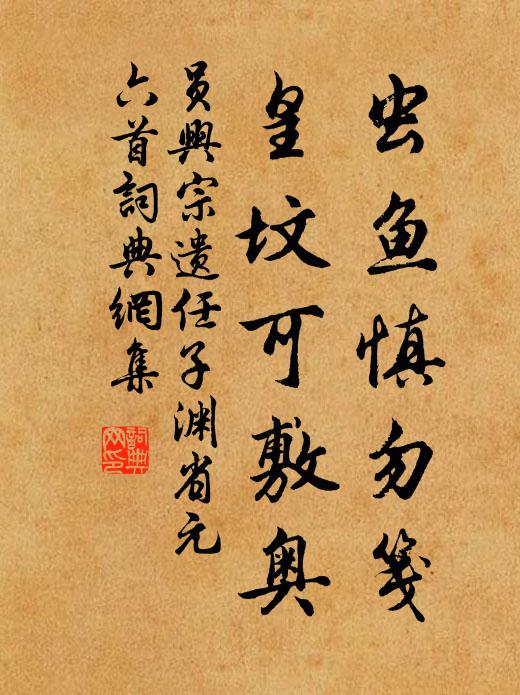 虫鱼慎勿箋
皇坟可敷奥
员興宗遗任子渊省元
六首詞典網集
詞典网印